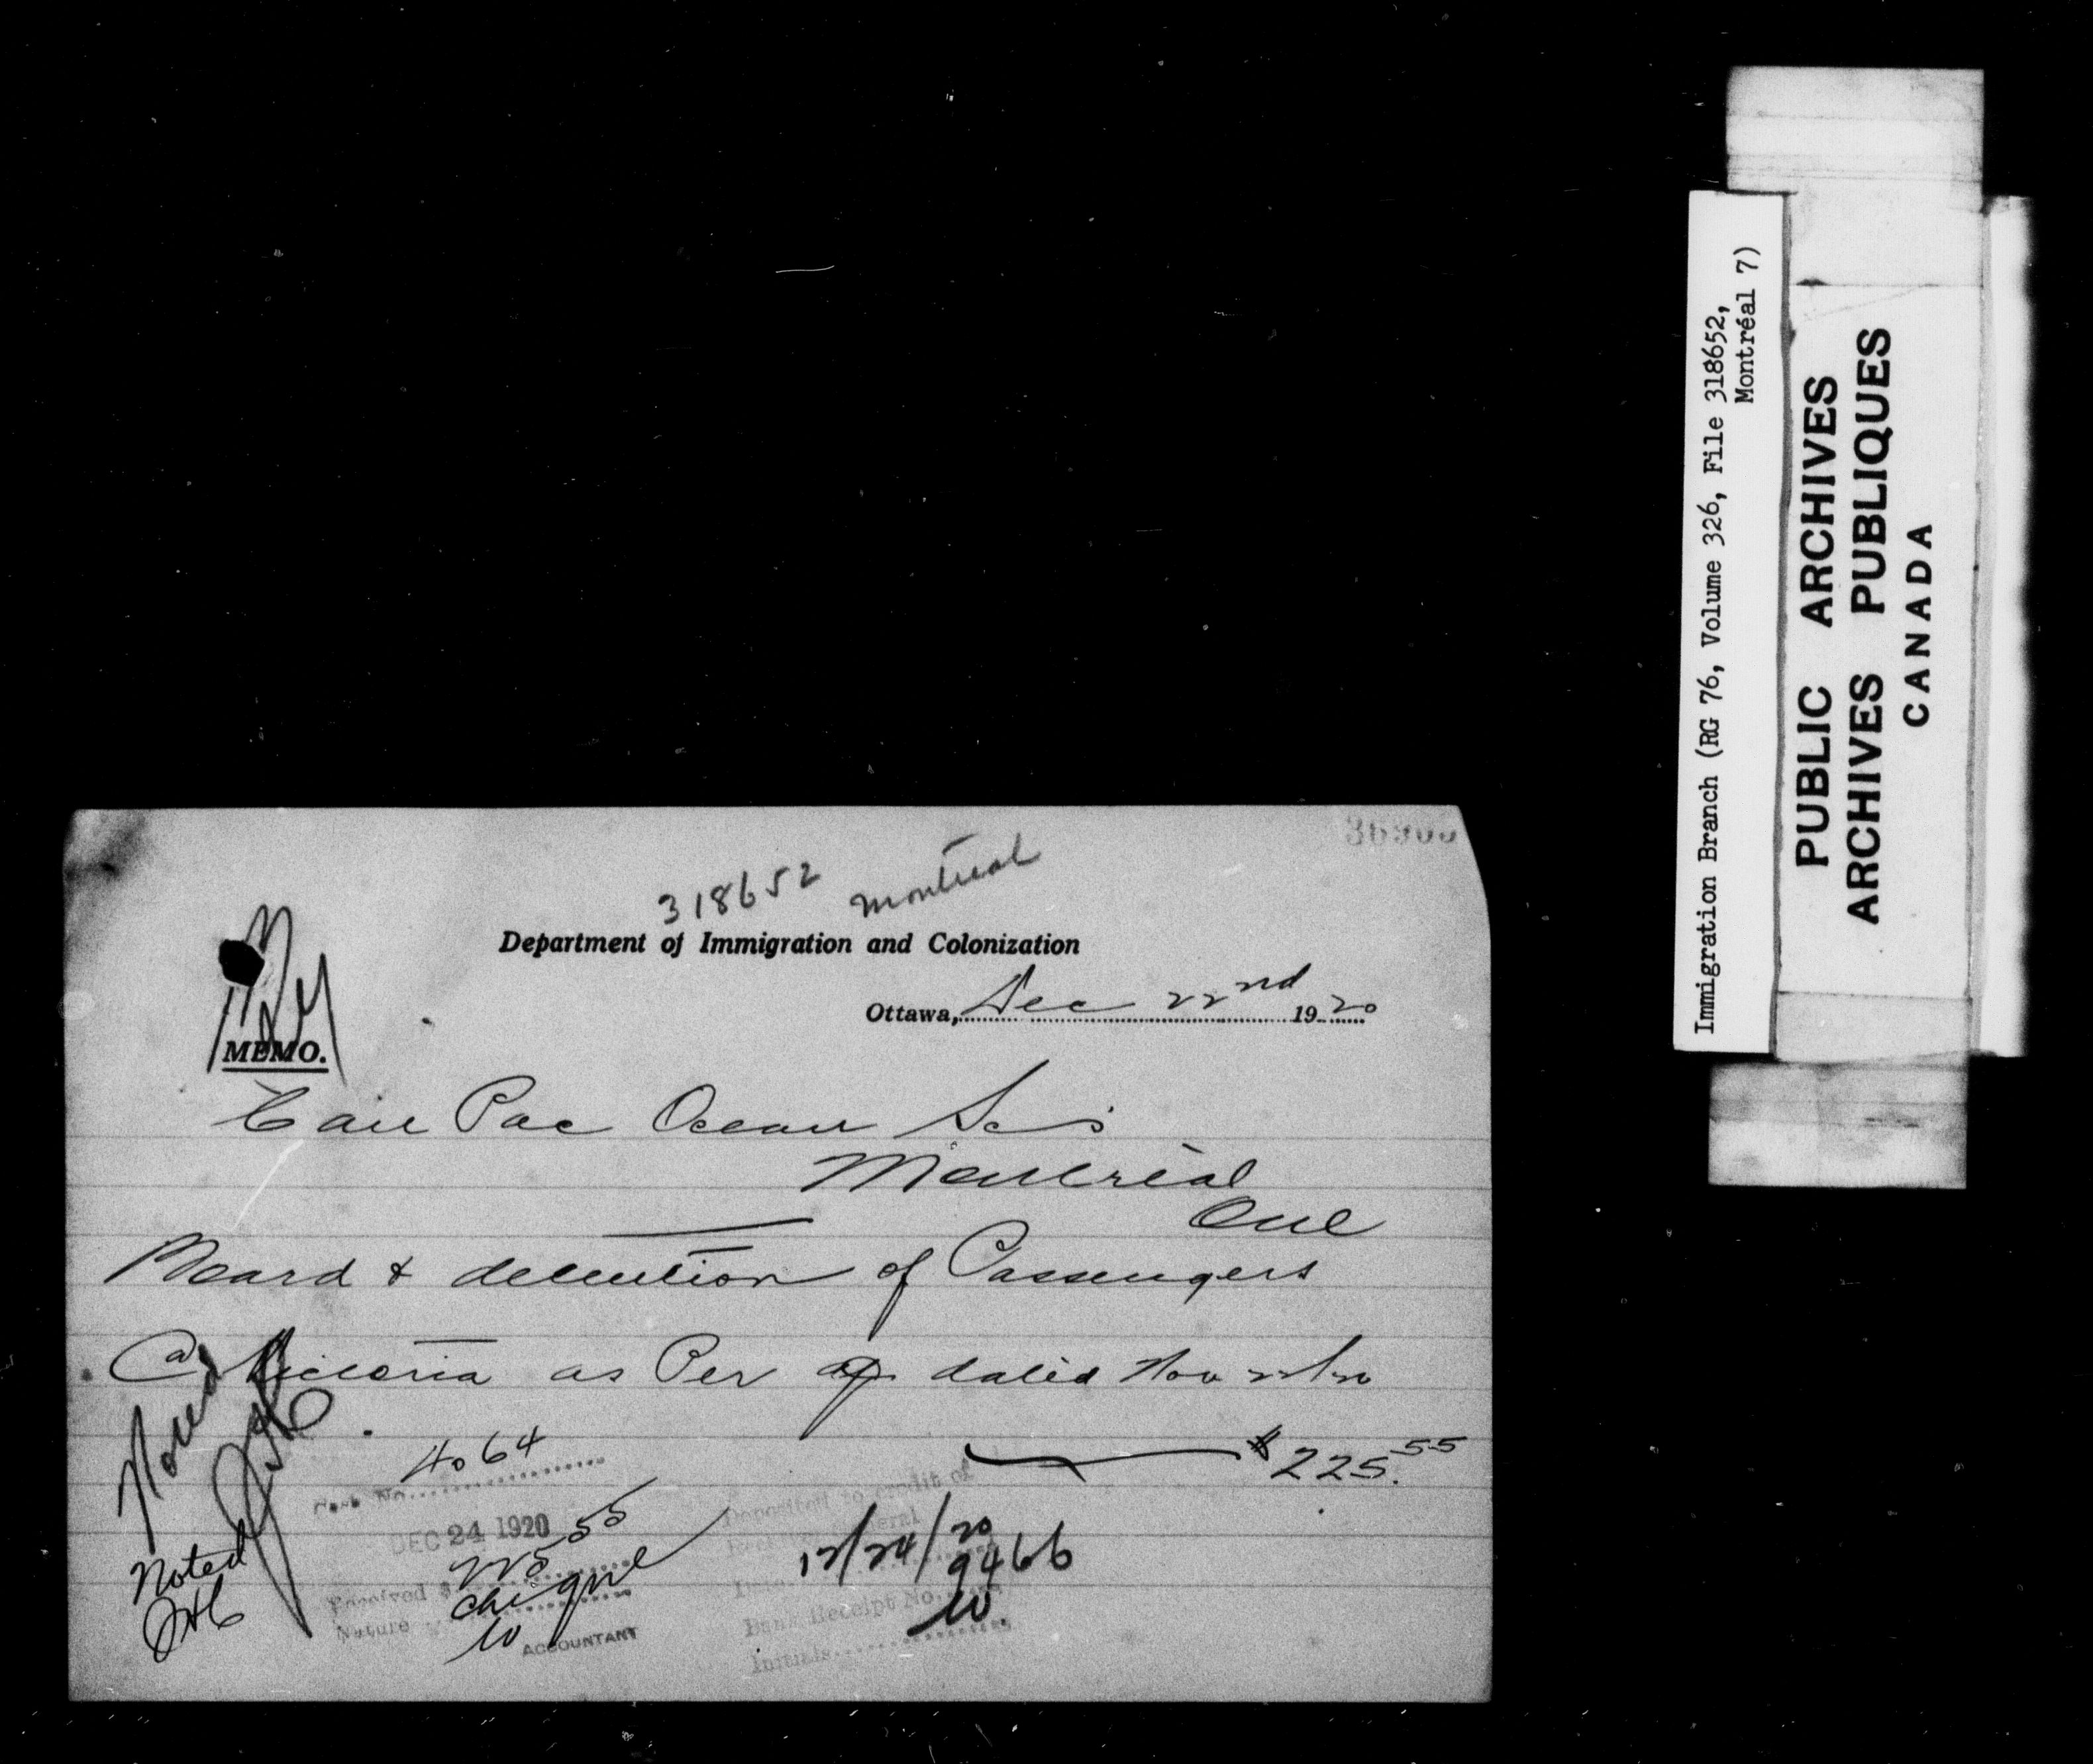 318652 Montreal
Department of Immigration and Colonization
Ottawa, Dec 22nd 1920
MEMO.
Can Pac Ocean Scs
Montreal
Que
Board & detention of Passengers
@ Victoria as Per a/c dated Nov 22/20
$225.55
4064
Cash No.
DEC 24 1920
Received $ 225.55
Nature cheque
W
ACCOUNTANT
Noted
Deposited to credit of
Receiver General
Date 12/24/20
Bank Receipt No. 9466
Initials W.
Immigration Branch (RG 76, Volume 326, File 318652,
Montréal 7)
PUBLIC ARCHIVES
ARCHIVES PUBLIQUES
CANADA